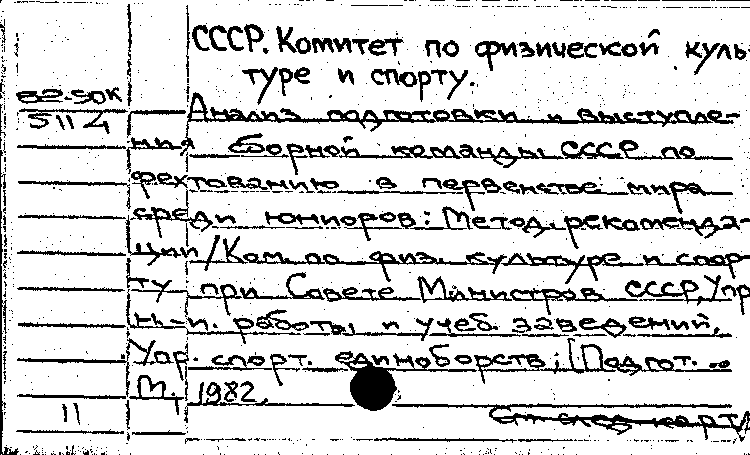 СССР. Комитет по физической куль-
туре и спорту.
82-50к
5114
Анализ подготовки и выступле-
ния сборной команды СССР по
фехтованию в первенстве мира
среди юниоров: Метод. рекоменда-
ции/Ком. по физ. культуре и спор-
ту при Совете Министров СССР, Упр.
н.-и. работы и учеб. заведений,
Упр. спорт. единоборств; [Подгот. ...
М., 1982.
11
См след карту